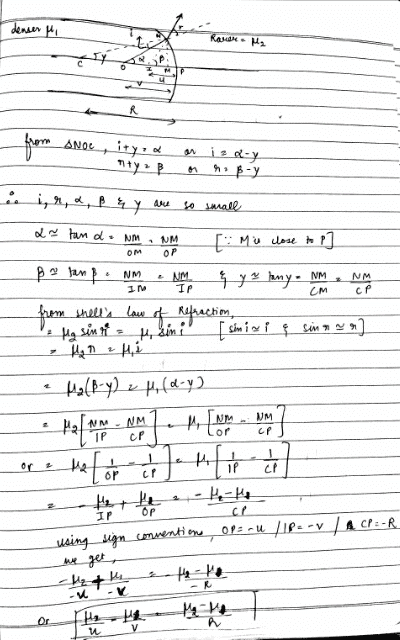 denser μ₁
Rarer = μ₂
i
N
r
C
y
O
α
I
β
M
P
u
v
R
from ΔNOC, i+y = α or i = α-y
r+y = β or r = β-y
∴ i, r, α, β & y are so small
α ≃ tan α = NM/OM = NM/OP [∵ M is close to P]
β ≃ tan β = NM/IM = NM/IP & y ≃ tan y = NM/CM = NM/CP
from snell's law of Refraction,
= μ₂ sin r = μ₁ sin i [sin i ≃ i & sin r ≃ r]
= μ₂ r = μ₁ i
= μ₂(β-y) = μ₁(α-y)
= μ₂[NM/IP - NM/CP] = μ₁[NM/OP - NM/CP]
or = μ₂[1/OP - 1/CP] = μ₁[1/IP - 1/CP]
= -μ₂/IP + μ₁/OP = -μ₂-μ₁/CP
using sign convention, OP = -u / IP = -v / CP = -R
we get,
-μ₂/-u + μ₁/-v = -μ₂-μ₁/-R
Or μ₂/u - μ₁/v = μ₂-μ₁/R